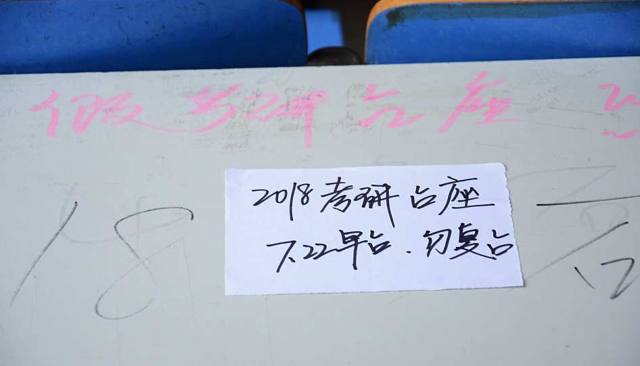 假考研占座
2018考研占座
7.22早占.勿复占
18